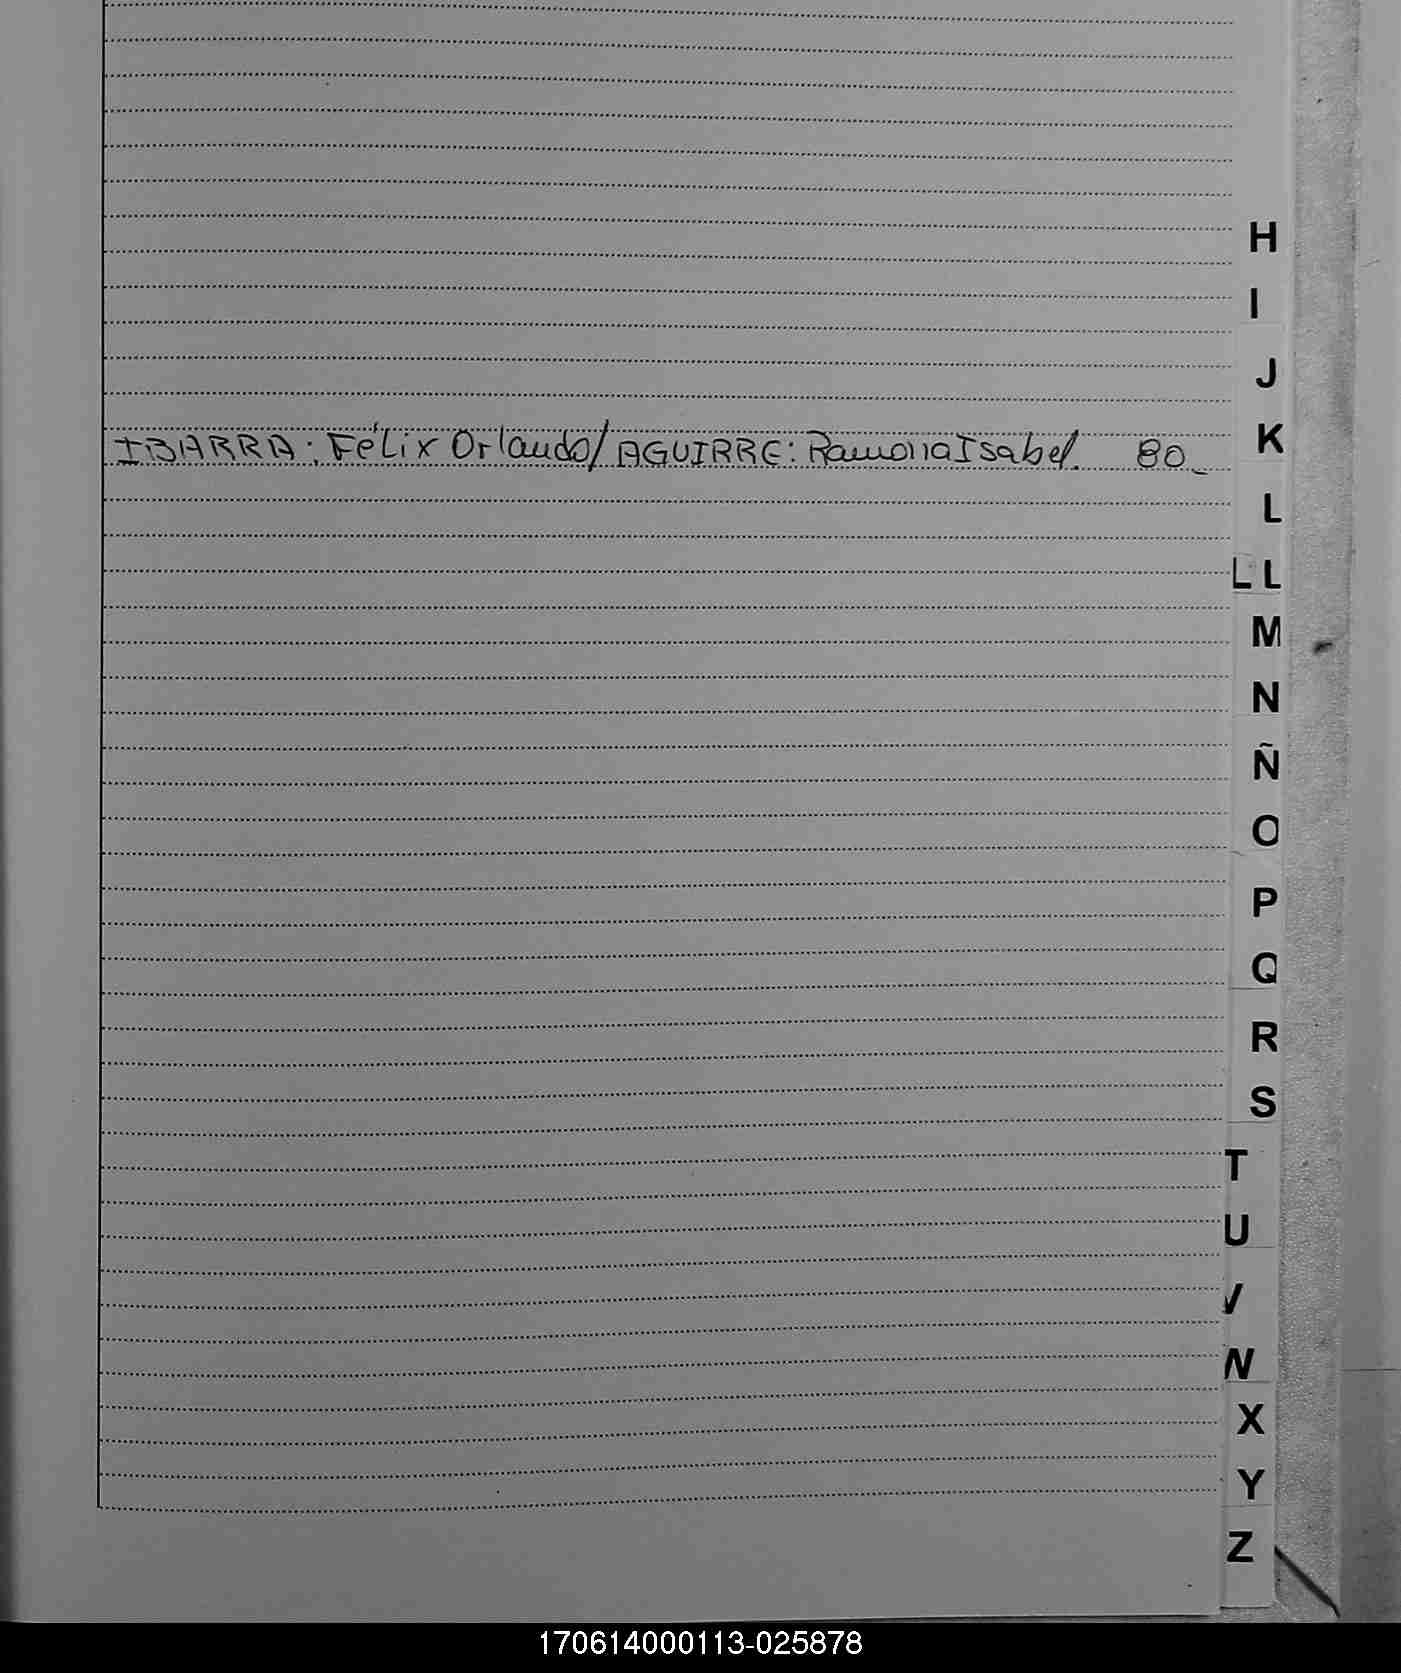 H
I
J
IBARRA: Félix Orlando/AGUIRRE: Ramona Isabel. 80_
K
L
LL
M
N
Ñ
O
P
Q
R
S
T
U
V
W
X
Y
Z
170614000113-025878